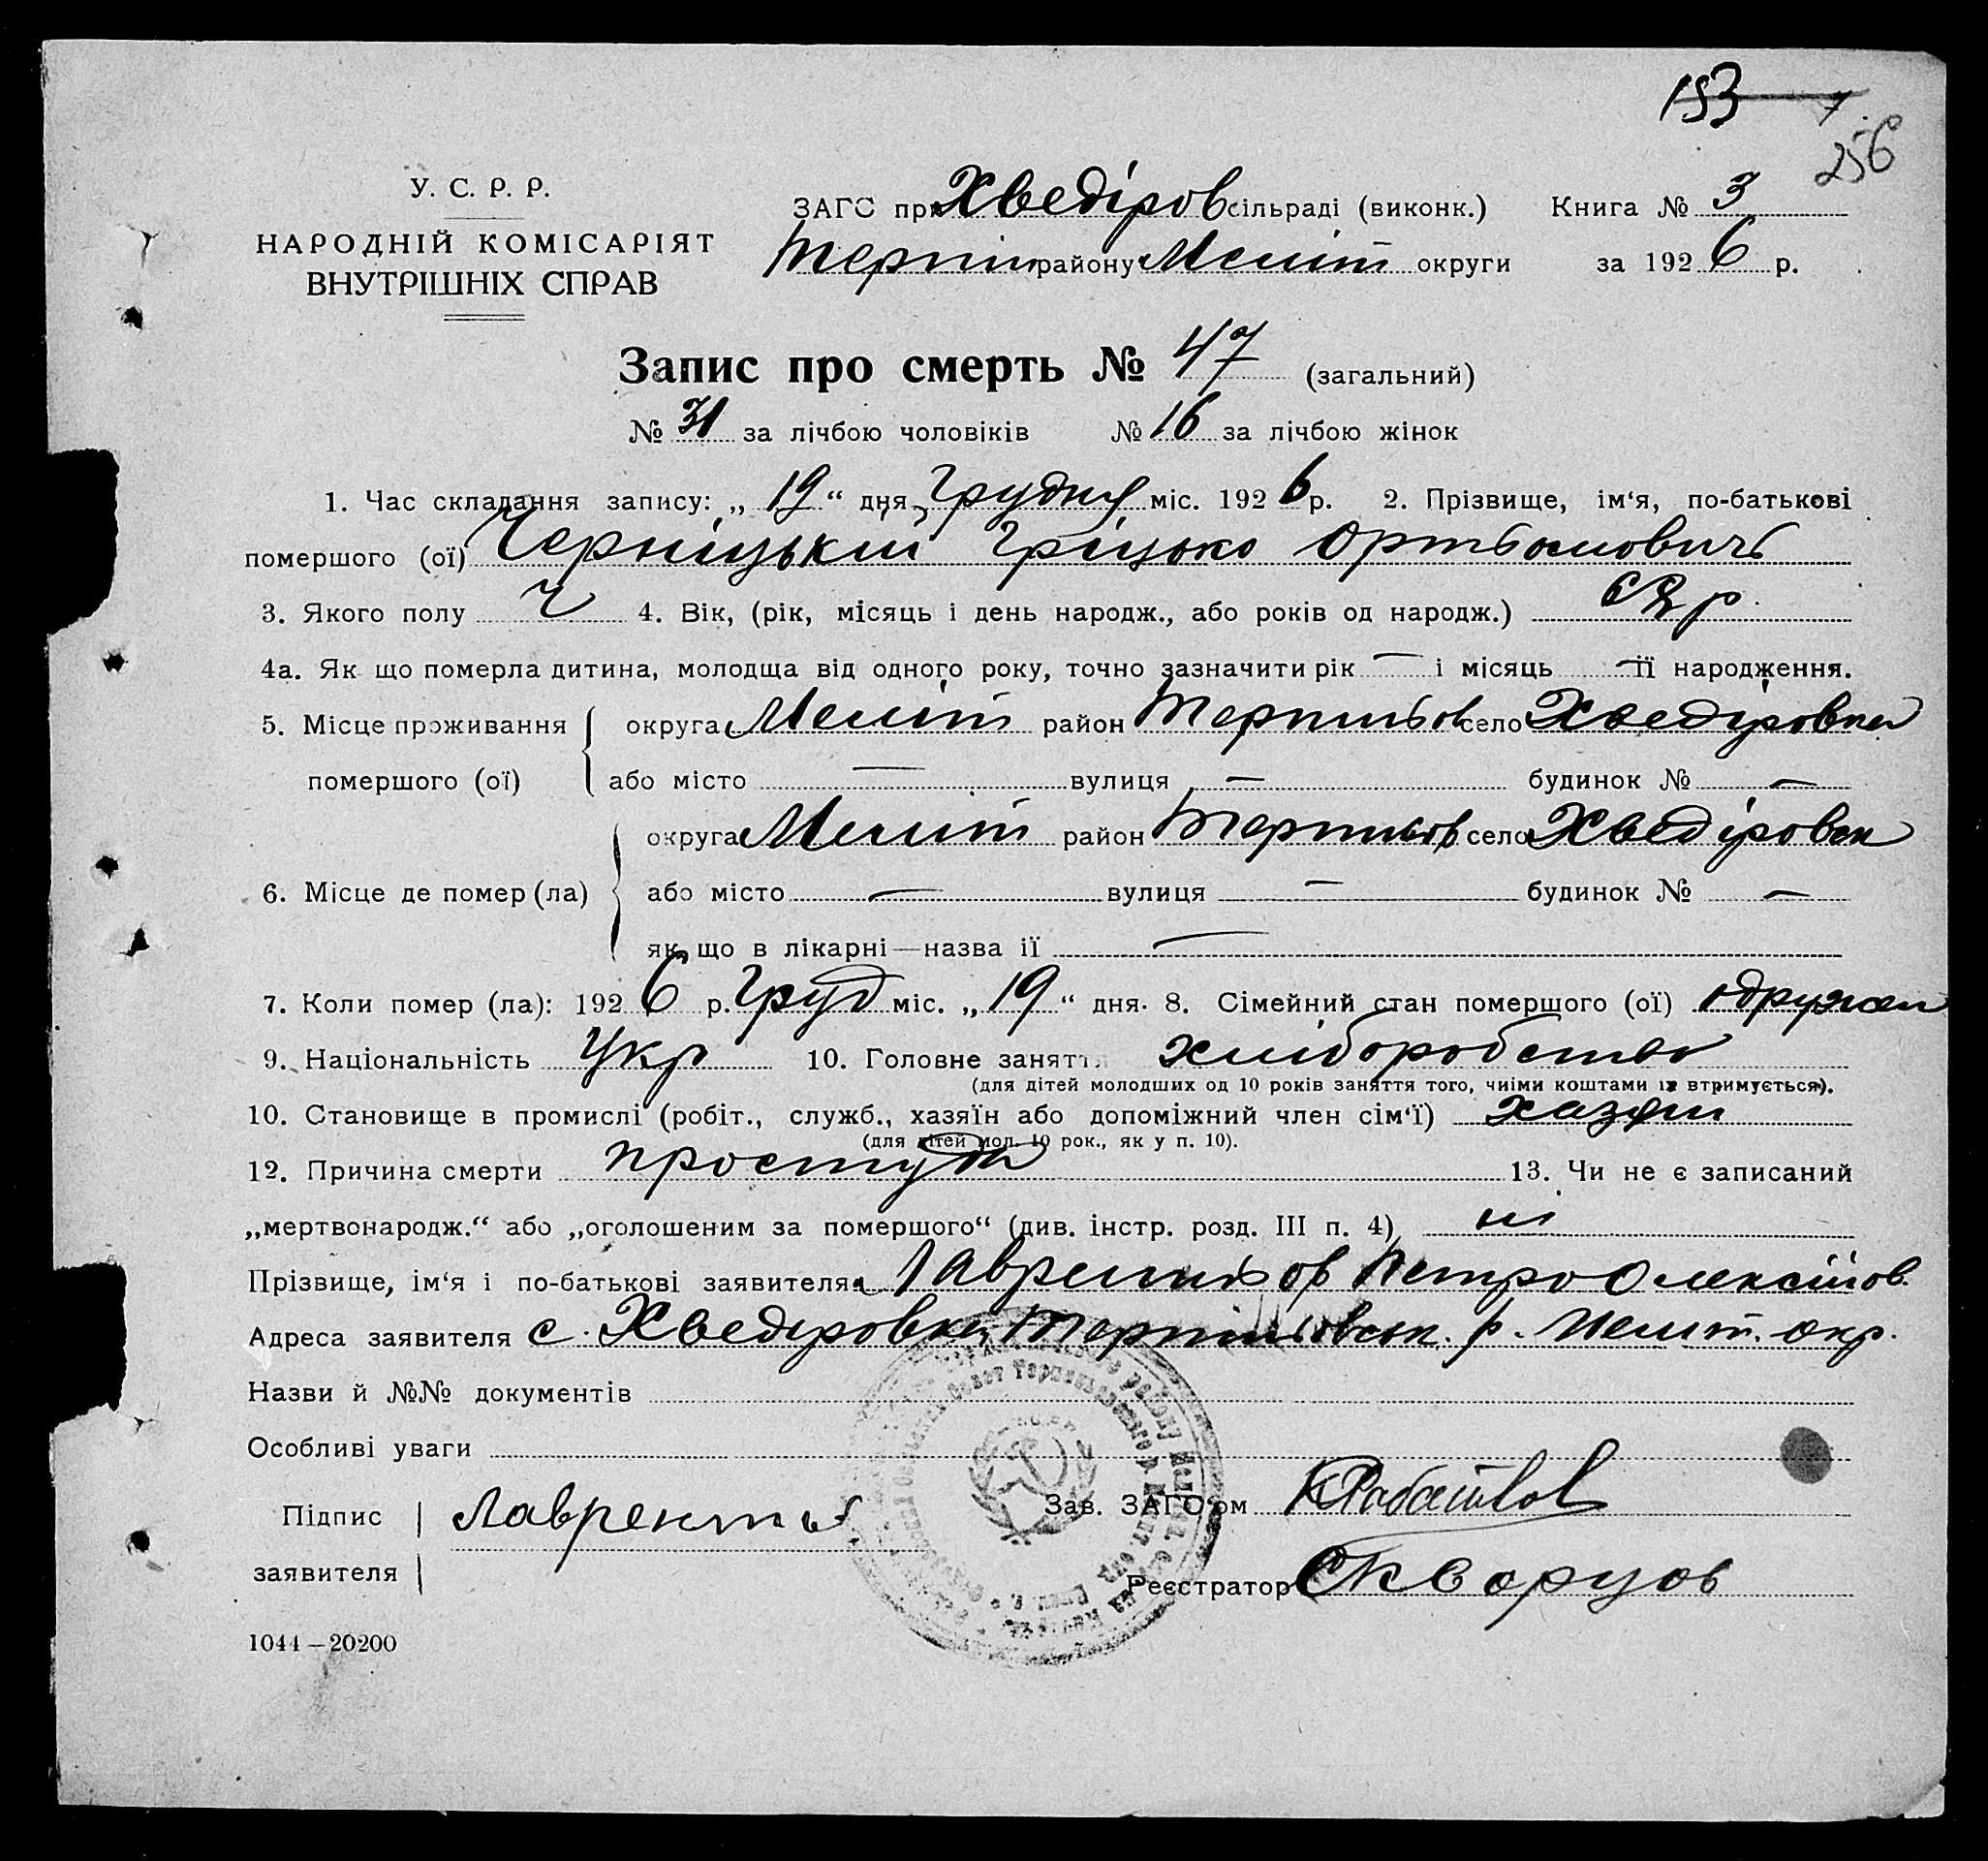 153 7.
256
У. С. Р. Р.
НАРОДНІЙ КОМІСАРІЯТ
ВНУТРІШНІХ СПРАВ
ЗАГС при Хведіров сільраді (виконк.) Книга № 3
Терпін району Меліт округи за 1926 р.
Запис про смерть № 47 (загальний)
№ 31 за лічбою чоловіків № 16 за лічбою жінок
1. Час складання запису: „19“ дня Грудня міс. 1926 р. 2. Прізвище, ім‘я, по-батькові
помершого (ої) Черніцький Гріцько Ортьомовичь
3. Якого полу ч 4. Вік, (рік, місяць і день народж., або років од народж.) р.
4а. Як що померла дитина, молодща від одного року, точно зазначити рік — і місяць — її народження.
5. Місце проживання округа Меліт район Терпиньов село Хведіровка
помершого (ої) або місто — вулиця — будинок № —
округа Меліт район Терпиньов село Хведіровк
6. Місце де помер (ла) або місто — вулиця — будинок № —
як що в лікарні—назва її —
7. Коли помер (ла): 1926 р. Груд міс. „19“ дня. 8. Сімейний стан помершого (ої) одружен
9. Національність Укр 10. Головне заняття хліборобство
(для дітей молодших од 10 років заняття того, чиїми коштами їх втримується).
10. Становище в промислі (робіт., служб., хазяїн або допоміжний член сім‘ї) хазяїн
(для дітей мол. 10 рок., як у п. 10).
12. Причина смерти простуда 13. Чи не є записаний
„мертвонародж.“ або „оголошеним за помершого“ (див. інстр. розд. III п. 4) ні
Прізвище, ім‘я і по-батькові заявителя Лаврентьов Петро Олексійов.
Адреса заявителя с. Хведіровка Терпіньовськ. р. Меліт. окр.
Назви й №№ документів
Особливі уваги
Підпис заявителя Лаврентьв
Зав. ЗАГС‘ом
Реєстратор Скворцов
1044—20200